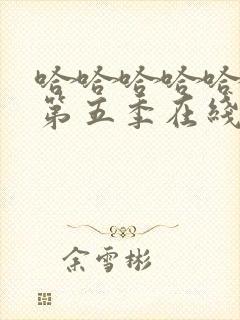 哈哈哈哈哈
第五季在线
余雪彬